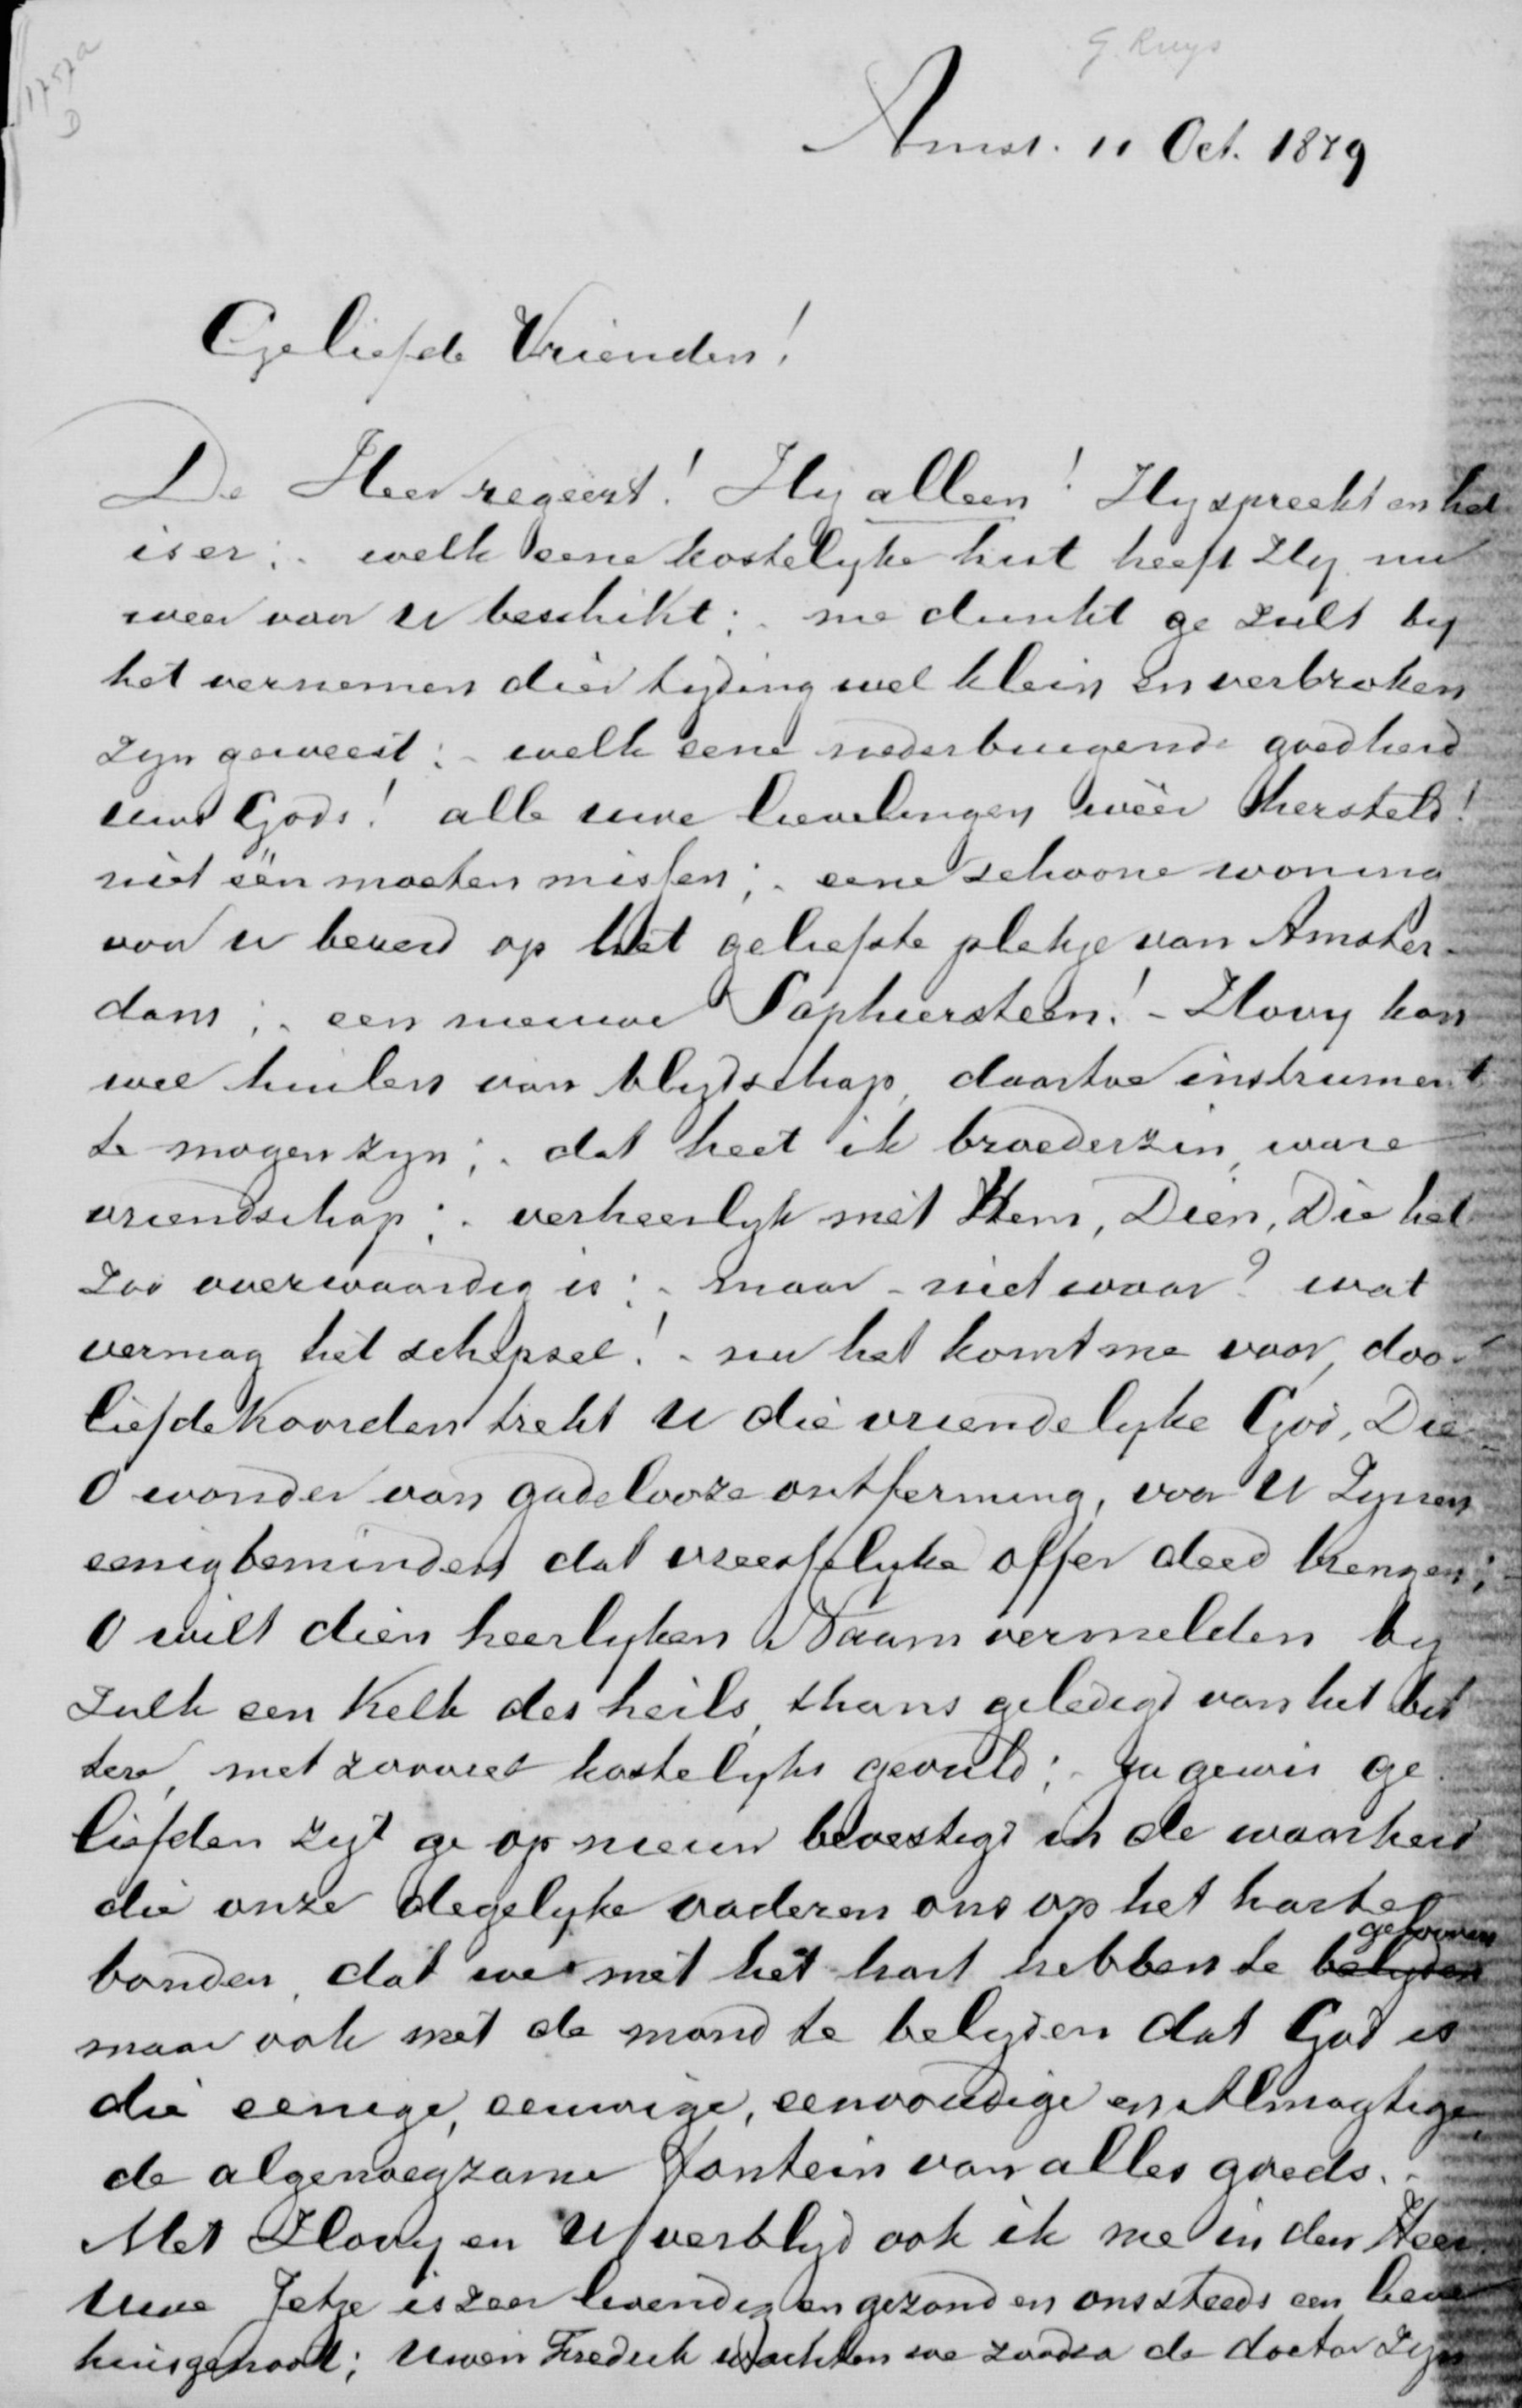 G. Ruys
1757a
D
Amst. 11 Oct. 1879
Geliefde Vrienden!
De Heer regeert! Hy alleen! Hy spreekt en het
is er; - welk eene kostelyke hut heeft Hy nu
weer voor U beschikt; - me dunkt ge zult by
het vernemen dier tyding wel klein en verbroken
zyn geweest; - welk eene nederbuigende goedheid
uws Gods! alle uwe lievelingen weêr hersteld!
niet één moeten missen; - eene schoone woning
voor u bereid op het geliefste plekje van Amster-
dam; - een nieuwe Saphiersteen! - Hovy kan
wel huilen van blydschap, daartoe instrument
te mogen zyn; - dat heet ik broederzin, ware
vriendschap; - verheerlyk met Hem, Dien, Die het
zoo overwaardig is; - maar - niet waar? wat
vermag het schepsel! - nu het komt me voor, door
liefdekoorden trekt U die vriendelyke God, Die -
O wonder van gadelooze ontferming, voor U Zynen
eenigbeminden dat vreesselyke offer deed brengen; -
O wilt dien heerlyken Naam vermelden by
zulk een Kelk des heils, thans geledigd van het bit
tere, met zooveel kostelyks gevuld; - ja gewis ge-
liefden zyt ge op nieuw bevestigd in de waarheid
die onze degelyke vaderen ons op het harte
bonden, dat we met het hart hebben te belyden gelooven
maar ook met de mond te belyden dat God is
die eenige, eeuwige, eenvoudige en Almagtige,
de algenoegzame fontein van alles goeds. -
Met Hovy en U verblyd ook ik me in den Heer.
Uwe Jetje is zeer levendig en gezond en ons steeds een lieve
huisgenoot; Uwen Fredrik wachten we zoodra de doctor zyn